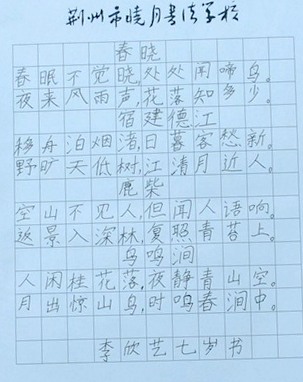 荆州市晓月书法学校
春晓
春眠不觉晓,处处闻啼鸟。
夜来风雨声,花落知多少。
宿建德江
移舟泊烟渚,日暮客愁新。
野旷天低树,江清月近人。
鹿柴
空山不见人,但闻人语响。
返景入深林,复照青苔上。
鸟鸣涧
人闲桂花落,夜静青山空。
月出惊山鸟,时鸣春涧中。
李欣艺七岁书